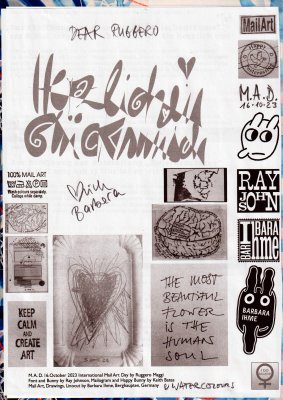 DEAR RUGGERO
MailArt
Herzlichen
Glückwunsch
M.A.D.
16·10·23
100% MAIL ART
Wash colours separately.
Dich
Barbara
RAY
JOHN
SON
I
BARBARA
Ihme
BAR
KEEP
CALM
AND
CREATE
ART
THE MOST
BEAUTIFUL
FLOWER
IS THE
HUMAN
SOUL
BARBARA
IHME
M. A. D. 16.October 2023 International Mail Art Day by Ruggero Maggi
Font and Bunny by Ray Johnson, Mailogram and Happy Bunny by Keith Bates
Mail Art, Drawings, Linocut by Barbara Ihme, Bergkapten, Germany
WATERCOLOURS